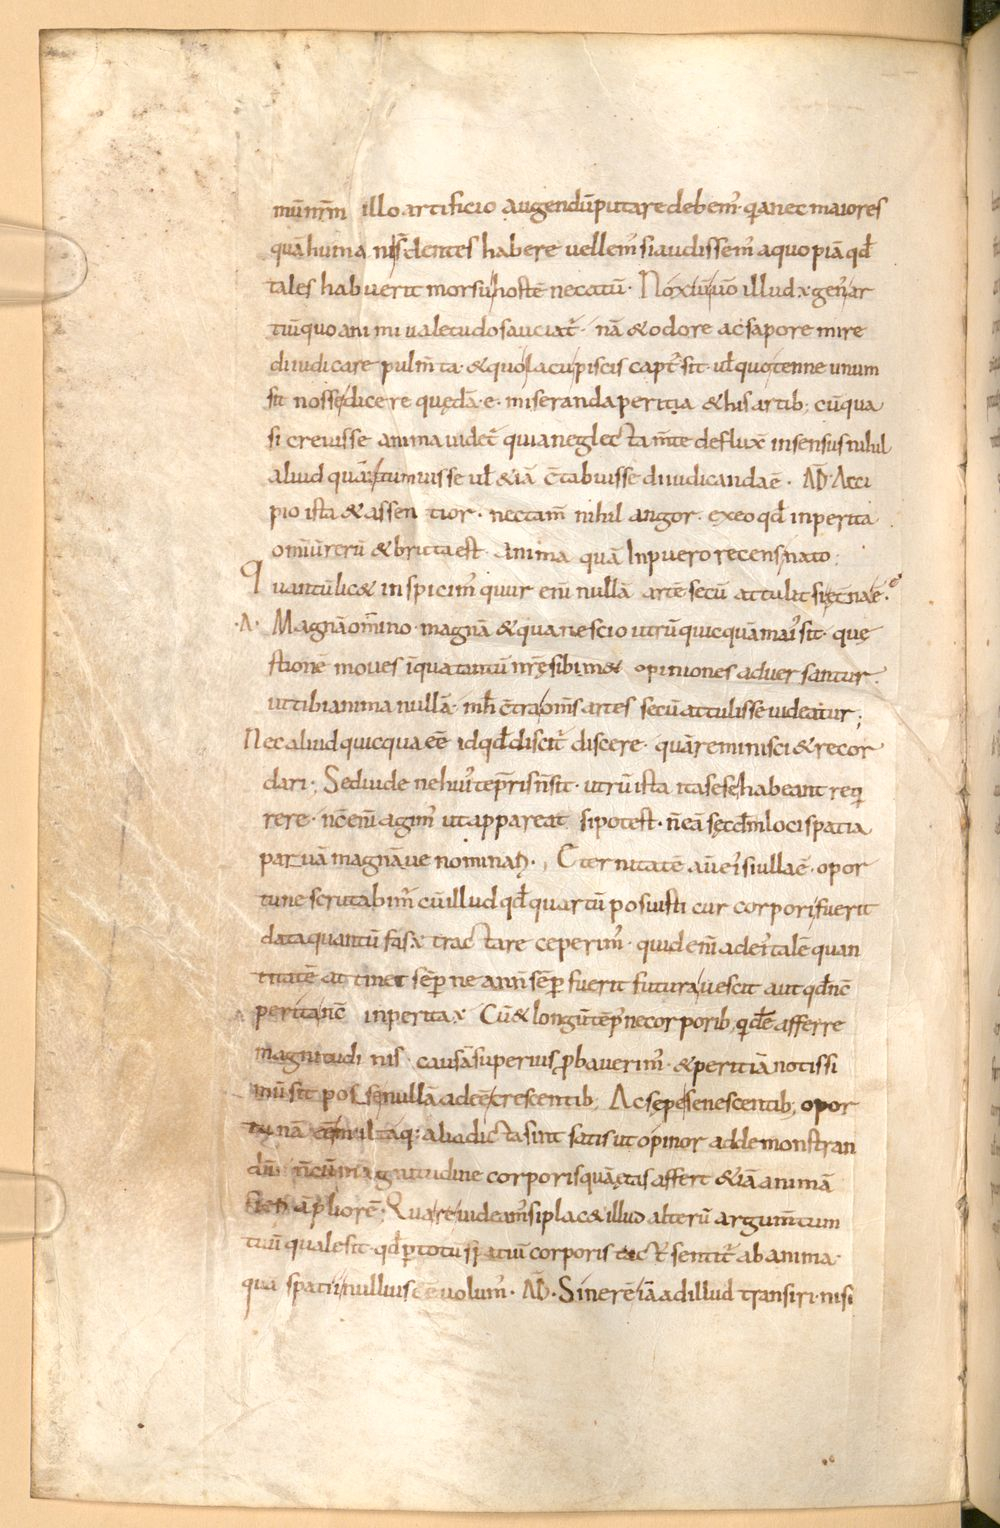 mū nr̄m illo artificio augendū putare debem᷒· qa nec maiores
quā humanis dentes habere vellem᷒ si audissem᷒ aquopiā qđ
tales habuerit morsu hostē necatū· Noxiū vō illud x genꝰ ar
tiū quo animi valetudo sauciat᷒· nā & odore ac sapore mire
diiudicare pulm̄ta· & quo lacu piscis capt᷒ sit· ul̄ quotenne vinum
sit nosse dicere quędā·e· miseranda peritia & his artib; cū qua
si crevisse anima videt᷒ quia neglecta m̄te defluxē in sensus nihil
aliud quā tumuisse ul̄ & iā c̄tabuisse diiudicanda ē· AD̄· Acci
pio ista & assentior· nec tam̄ nihil angor· ex eo qđ inperita
omiū rerū & bruta est anima quā In puero recens nato;
Quantū lic& inspicim᷒ quur eni nullā artē secū attulit si ęt̄na ē·
·A· Magnā omīno· magnā & qua nescio utrū quicquā mai᷒ sit· quę
stionē moves ī qua tantū nr̄ę sibim& opiniones adversantur·
ut tibi anima nullā· mh̄ c̄tra om̄s artes secū attulisse videatur;
Nec aliud quicqua eē id qđ discit᷒ discere· quā reminisci & recor
dari; Sed vide ne hui᷒ tēpr̄is n̄ sit· utrū ista ita sese habeant req̄
rere· nc̄ enī agim᷒ ut appareat si potest· n̄ eā sęcdm̄ loci spatia
parvā magnāve nominari· Eternitatē aū ei᷒ si ulla ē· opor
tune scrutabim᷒ cū illud qđ quartū posuisti cur corpori fuerit
data quantū fas ē tractare ceperim᷒· quid enī ad ei᷒ talē quan
titatē attinet sēp̄ ne an n̄ sēp̄ fuerit futura vescit aut qđ nc̄
perita nc̄ inperita x Cū & longū tēp᷒ nec orporib; qđē afferre
magnitudinis causā superius p̄baverim᷒· & peritiā notissi
mū sit posse nullā adeē crescentib; Ac sępe senescentib; opor
tunā cū multaq; alia dicta sint satis ut opinor addemonstran
dū n̄ cū magnitudine corporis quā ętas affert & iā animā
fieri āpliorē; Quare videam᷒ si plac& illud alterū argum̄tum
tuū quale sit· qđ p̄ totū spatiū corporis tact᷒ sentit᷒ ab anima·
quā spatii nullius eē volum᷒· AD̄· Sinerē iā ad illud transiri· nisi